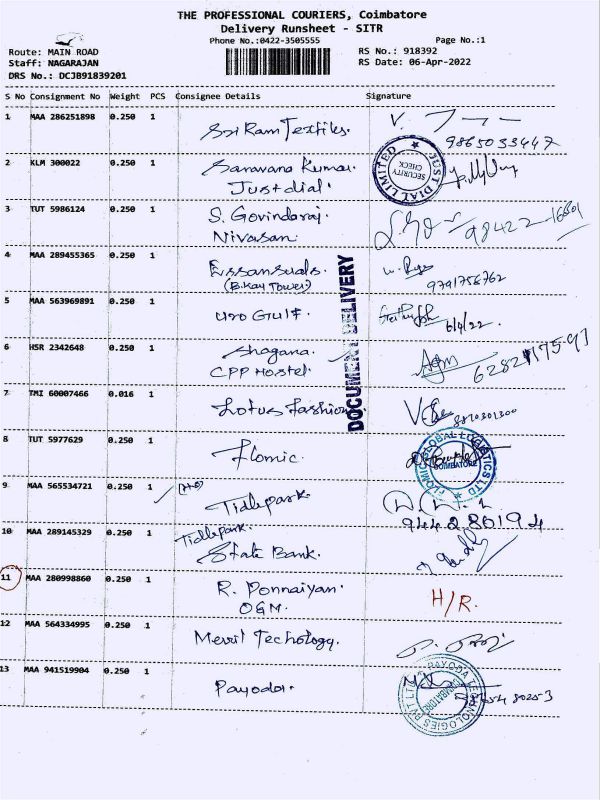 THE PROFESSIONAL COURIERS, Coimbatore
Delivery Runsheet - SITR
Phone No.:0422-3505555
Page No.:1
Route: MAIN ROAD
RS No.: 918392
Staff: NAGARAJAN
RS Date: 06-Apr-2022
DRS No.: DCJB91839201
S No Consignment No Weight PCS Consignee Details Signature
1 MAA 286251898 0.250 1 Sri Ram Textiles.
9865033447
2 KLM 300022 0.250 1 Saravana Kumar
Justdial.
JUST DIAL LIMITED
SECURITY CHECK
3 TUT 5986124 0.250 1 S. Govindaraj
Nivasan.
98422
4 MAA 289455365 0.250 1 Essansuals.
(B.Kay Tower)
9791756762
DOCUMENT DELIVERY
5 MAA 563969891 0.250 1 Uro Gulf.
6/4/22.
6 HSR 2342648 0.250 1 Shagana.
CPP Hostel.
7 TMI 60007466 0.016 1 Lotus Fashion
8870301300
8 TUT 5977629 0.250 1 Flomic.
FLOMIC GLOBAL LOGISTICS LTD
COIMBATORE
9 MAA 565534721 0.250 1 (H.O) Tidlepark
944280194
10 MAA 289145329 0.250 1 Tidlepark.
State Bank.
11 MAA 280998860 0.250 1 R. Ponnaiyan.
OGM.
H/R.
12 MAA 564334995 0.250 1 Merril Techology.
13 MAA 941519904 0.250 1 Payoda.
PAYODA TECHNOLOGIES PVT LTD